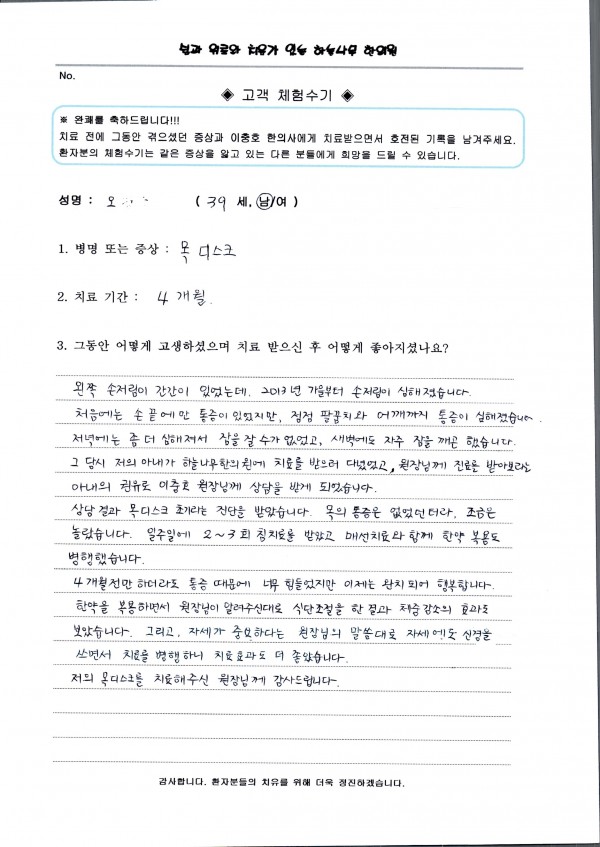 No.
◈ 고객 체험수기 ◈
※ 완쾌를 축하드립니다!!!
치료 전에 그동안 겪으셨던 증상과 이충호 한의사에게 치료받으면서 호전된 기록을 남겨주세요.
환자분의 체험수기는 같은 증상을 앓고 있는 다른 분들에게 희망을 드릴 수 있습니다.
성명 : 오 ( 39 세, 남/여 )
1. 병명 또는 증상 : 목 디스크
2. 치료 기간 : 4 개월.
3. 그동안 어떻게 고생하셨으며 치료 받으신 후 어떻게 좋아지셨나요?
왼쪽 손저림이 간간이 있었는데. 2013년 가을부터 손저림이 심해졌습니다.
처음에는 손 끝에만 통증이 있었지만, 점점 팔꿈치와 어깨까지 통증이 심해졌습니다.
저녁에는 좀 더 심해져서 잠을 잘 수가 없었고, 새벽에도 자주 잠을 깨곤 했습니다.
그 당시 저의 아내가 하늘나무한의원에 치료를 받으러 다녔었고, 원장님께 진료를 받아보라는
아내의 권유로 이충호 원장님께 상담을 받게 되었습니다.
상담 결과 목디스크 초기라는 진단을 받았습니다. 목의 통증은 없었던터라, 조금은
놀랐습니다. 일주일에 2~3회 침치료를 받았고 매선치료와 함께 한약 복용도
병행했습니다.
4개월전만 하더라도 통증 때문에 너무 힘들었지만 이제는 완치되어 행복합니다.
한약을 복용하면서 원장님이 알려주신대로 식단조절을 한 결과 체중감소의 효과도
보았습니다. 그리고, 자세가 중요하다는 원장님의 말씀대로 자세에도 신경을
쓰면서 치료를 병행하니 치료효과도 더 좋았습니다.
저의 목디스크를 치료해주신 원장님께 감사드립니다.
감사합니다. 환자분들의 치유를 위해 더욱 정진하겠습니다.